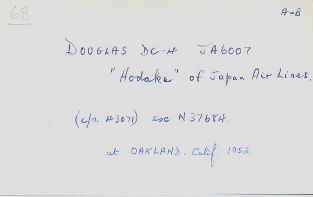 68
A-B
DOUGLAS DC-4 JA6007
"Hodaka" of Japan Air Lines.
(c/n. 43071) exc N37684.
at OAKLAND. Calif 1952.